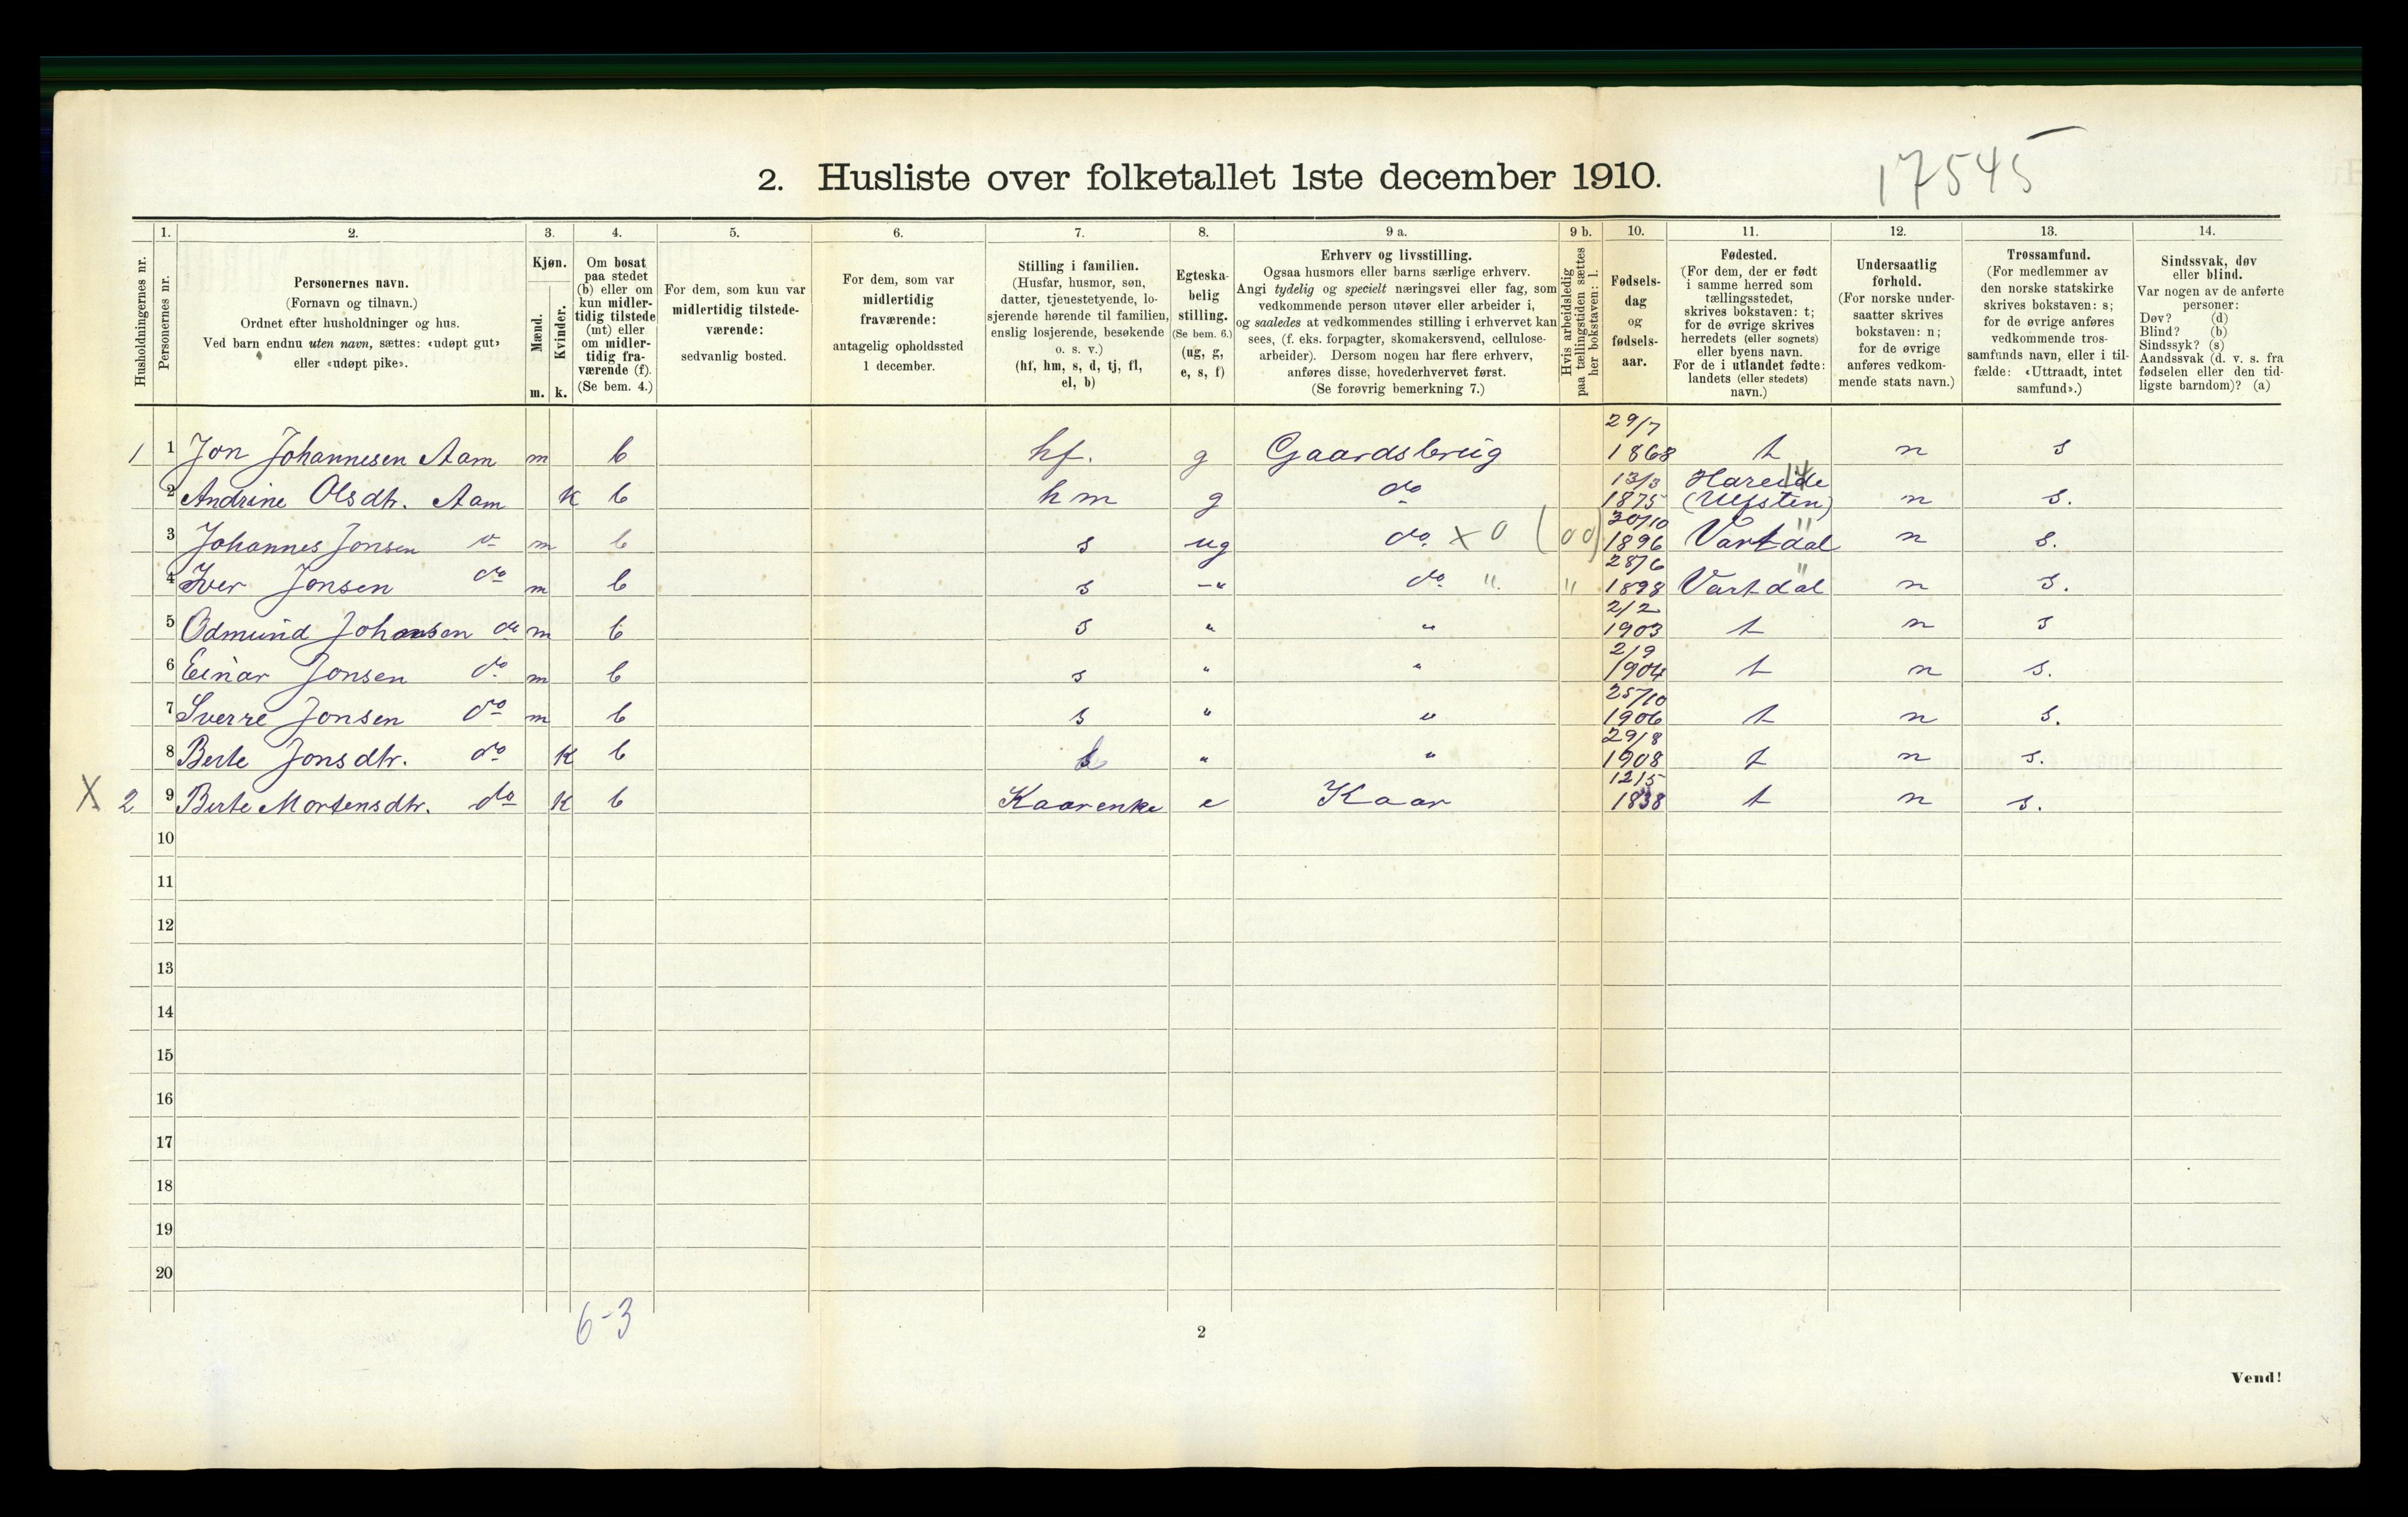 2. Husliste over folketallet 1ste december 1910.
17545
1. 2. 3. 4. 5. 6. 7. 8. 9 a. 9 b. 10. 11. 12. 13. 14.
Husholdningernes nr.
Personernes nr.
Personernes navn.
(Fornavn og tilnavn.)
Ordnet efter husholdninger og hus.
Ved barn endnu uten navn, sættes: «udøpt gut»
eller «udøpt pike».
Kjøn.
Mænd.
Kvinder.
m. k.
Om bosat
paa stedet
(b) eller om
kun midler-
tidig tilstede
(mt) eller
om midler-
tidig fra-
værende (f).
(Se bem. 4.)
For dem, som kun var
midlertidig tilstede-
værende:
sedvanlig bosted.
For dem, som var
midlertidig
fraværende:
antagelig opholdssted
1 december.
Stilling i familien.
(Husfar, husmor, søn,
datter, tjenestetyende, lo-
sjerende hørende til familien,
enslig losjerende, besøkende
o. s. v.)
(hf, hm, s, d, tj, fl,
el, b)
Egteska-
belig
stilling.
(Se bem. 6.)
(ug, g,
e, s, f)
Erhverv og livsstilling.
Ogsaa husmors eller barns særlige erhverv.
Angi tydelig og specielt næringsvei eller fag, som
vedkommende person utøver eller arbeider i,
og saaledes at vedkommendes stilling i erhvervet kan
sees, (f. eks. forpagter, skomakersvend, cellulose-
arbeider). Dersom nogen har flere erhverv,
anføres disse, hovederhvervet først.
(Se forøvrig bemerkning 7.)
Hvis arbeidsledig
paa tællingstiden sættes
her bokstaven: l.
Fødsels-
dag
og
fødsels-
aar.
Fødested.
(For dem, der er født
i samme herred som
tællingsstedet,
skrives bokstaven: t;
for de øvrige skrives
herredets (eller sognets)
eller byens navn.
For de i utlandet fødte:
landets (eller stedets)
navn.)
Undersaatlig
forhold.
(For norske under-
saatter skrives
bokstaven: n;
for de øvrige
anføres vedkom-
mende stats navn.)
Trossamfund.
(For medlemmer av
den norske statskirke
skrives bokstaven: s;
for de øvrige anføres
vedkommende tros-
samfunds navn, eller i til-
fælde: «Uttraadt, intet
samfund».)
Sindssvak, døv
eller blind.
Var nogen av de anførte
personer:
Døv? (d)
Blind? (b)
Sindssyk? (s)
Aandssvak (d. v. s. fra
fødselen eller den tid-
ligste barndom)? (a)
1 1 Jon Johannesen Aam m b hf. g Gaardsbrug 29/7 1868 t n s
2 Andrine Olsdtr. Aam k b hm g do 13/3 1875 Hareide (Ulfsten) 14 n s.
3 Johannes Jonsen do m b s ug do. X 0 (00) 30/10 1896 Vartdal " n s.
4 Iver Jonsen do m b s -" do " " 28/6 1898 Vartdal " n s.
5 Odmund Johansen do m b s " " 2/2 1903 t n s
6 Einar Jonsen do m b s " " 2/9 1904 t n s.
7 Sverre Jonsen do m b s " " 25/10 1906 t n s.
8 Berte Jonsdtr. do k b " " 29/8 1908 t n s.
X 2 9 Berte Mortensdtr. do k b Kaarenke e Kaar 12/5 1838 t n s.
10
11
12
13
14
15
16
17
18
19
20
6-3
2
Vend!